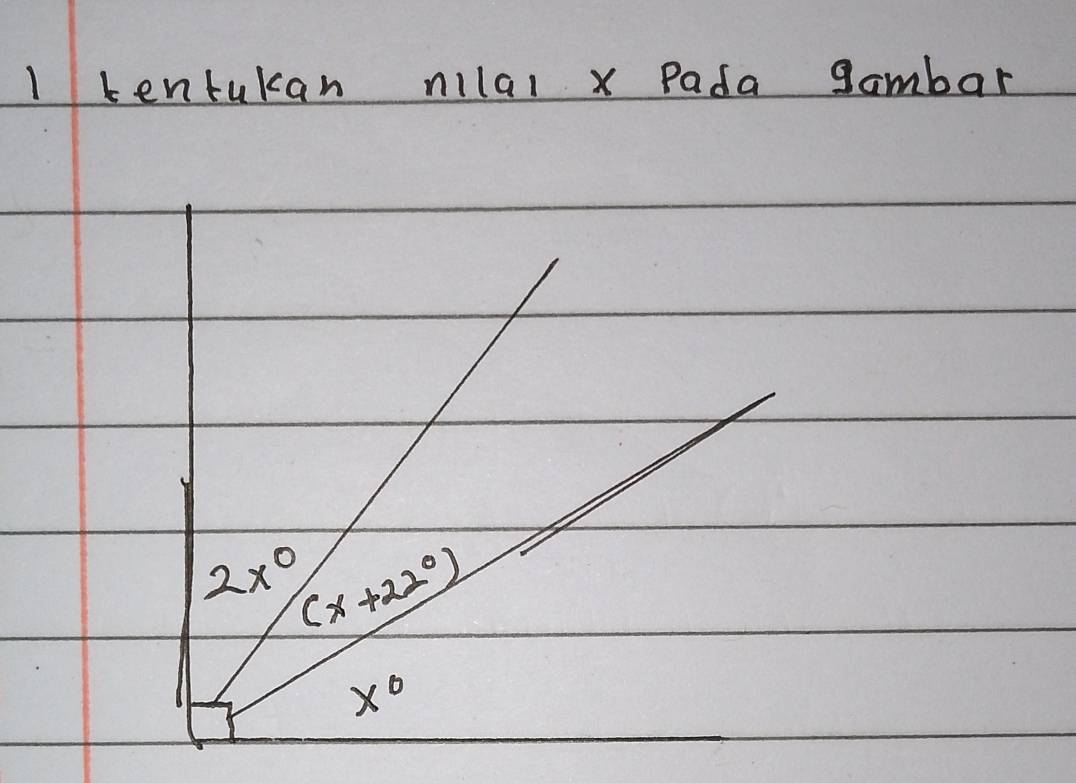 1 tentukan nilai x Pada gambar
2x°
(x+22°)
x°